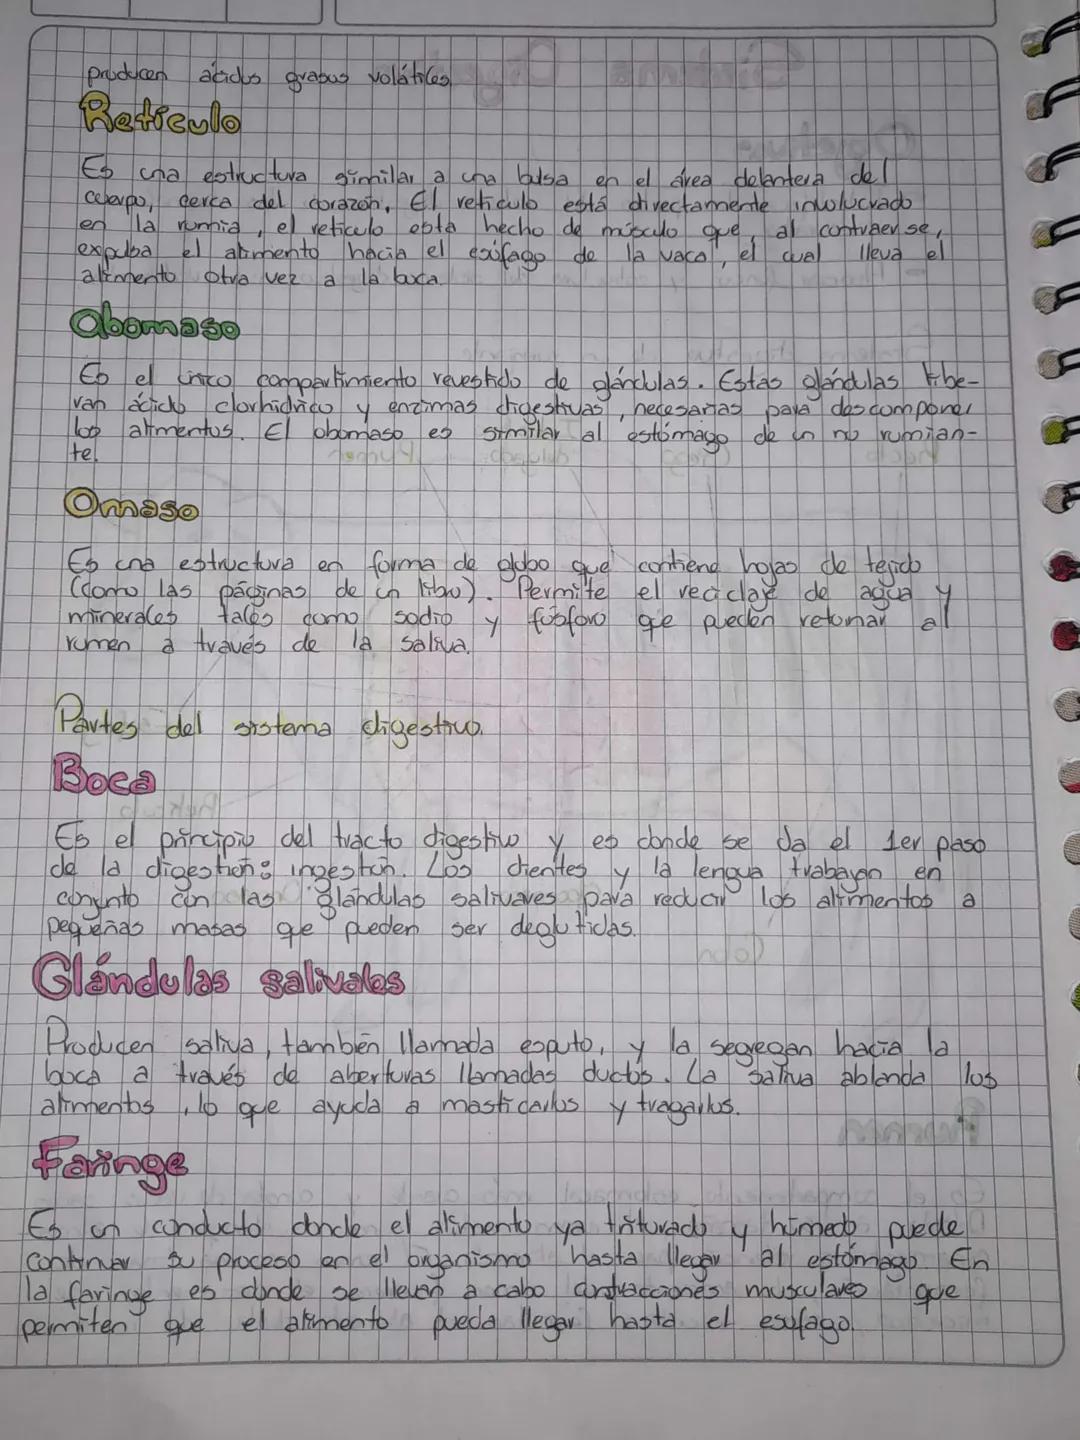 producen ácidos grasos volátiles
Retículo
Es una estructura similar a una bolsa en el área delantera del
cuerpo, cerca del corazón, El retículo está directamente involucrado
en la rumia, el retículo esta hecho de músculo que, al contraerse,
expulsa el alimento hacia el esófago de la vaca, el cual lleva el
alimento otra vez a la boca.
Abomaso
Es el único compartimiento revestido de glándulas. Estas glándulas libe-
ran ácido clorhídrico y enzimas digestivas, necesarias para descomponer
los alimentos. El abomaso es similar al estómago de un no rumian-
te.
Omaso
Es una estructura en forma de globo que contiene hojas de tejido
(como las páginas de un libro). Permite el reciclaje de agua y
minerales tales como sodio y fósforo que pueden retornar al
rumen a través de la saliva.
Partes del sistema digestivo.
Boca
Es el principio del tracto digestivo y es donde se da el 1er paso
de la digestión: ingestión. Los dientes y la lengua trabajan en
conjunto con las glándulas salivares para reducir los alimentos a
pequeñas masas que pueden ser deglutidas.
Glándulas salivales
Producen saliva, también llamada esputo, y la segregan hacia la
boca a través de aberturas llamadas ductos. La saliva ablanda los
alimentos, lo que ayuda a masticarlos y tragarlos.
Faringe
Es un conducto donde el alimento ya triturado y húmedo puede
continuar su proceso en el organismo hasta llegar al estómago. En
la faringe es donde se llevan a cabo contracciones musculares que
permiten que el alimento pueda llegar hasta el esófago.